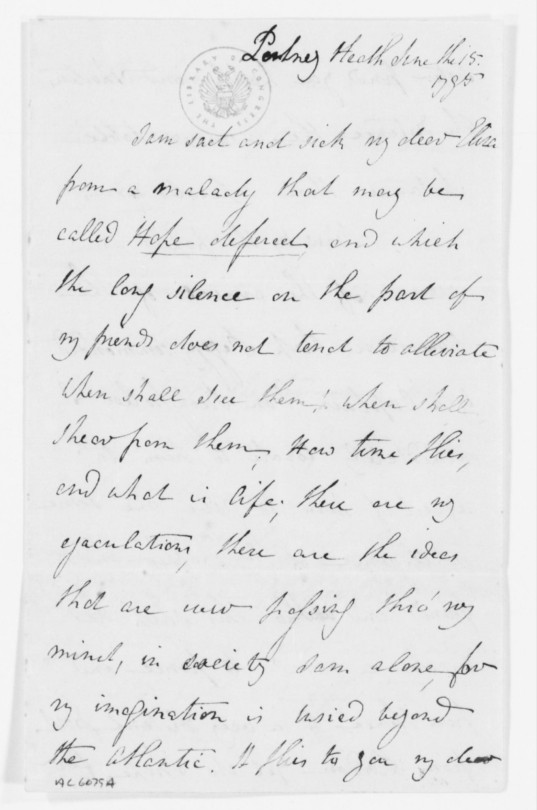 Putney Heath June the 15.
1795
THE LIBRARY OF CONGRESS
I am sad and sick my dear Eliza
from a malady that may be
called Hope defered, and which
the long silence on the part of
my friends does not tend to alleviate
when shall I see them! when shall
I hear from them, How time flies,
and what is life, these are my
ejaculations, these are the ideas
that are ever passing thro' my
mind, in society I am alone, for
my imagination is beyond
the Atlantic. It flies to you my dear
AC 6079A